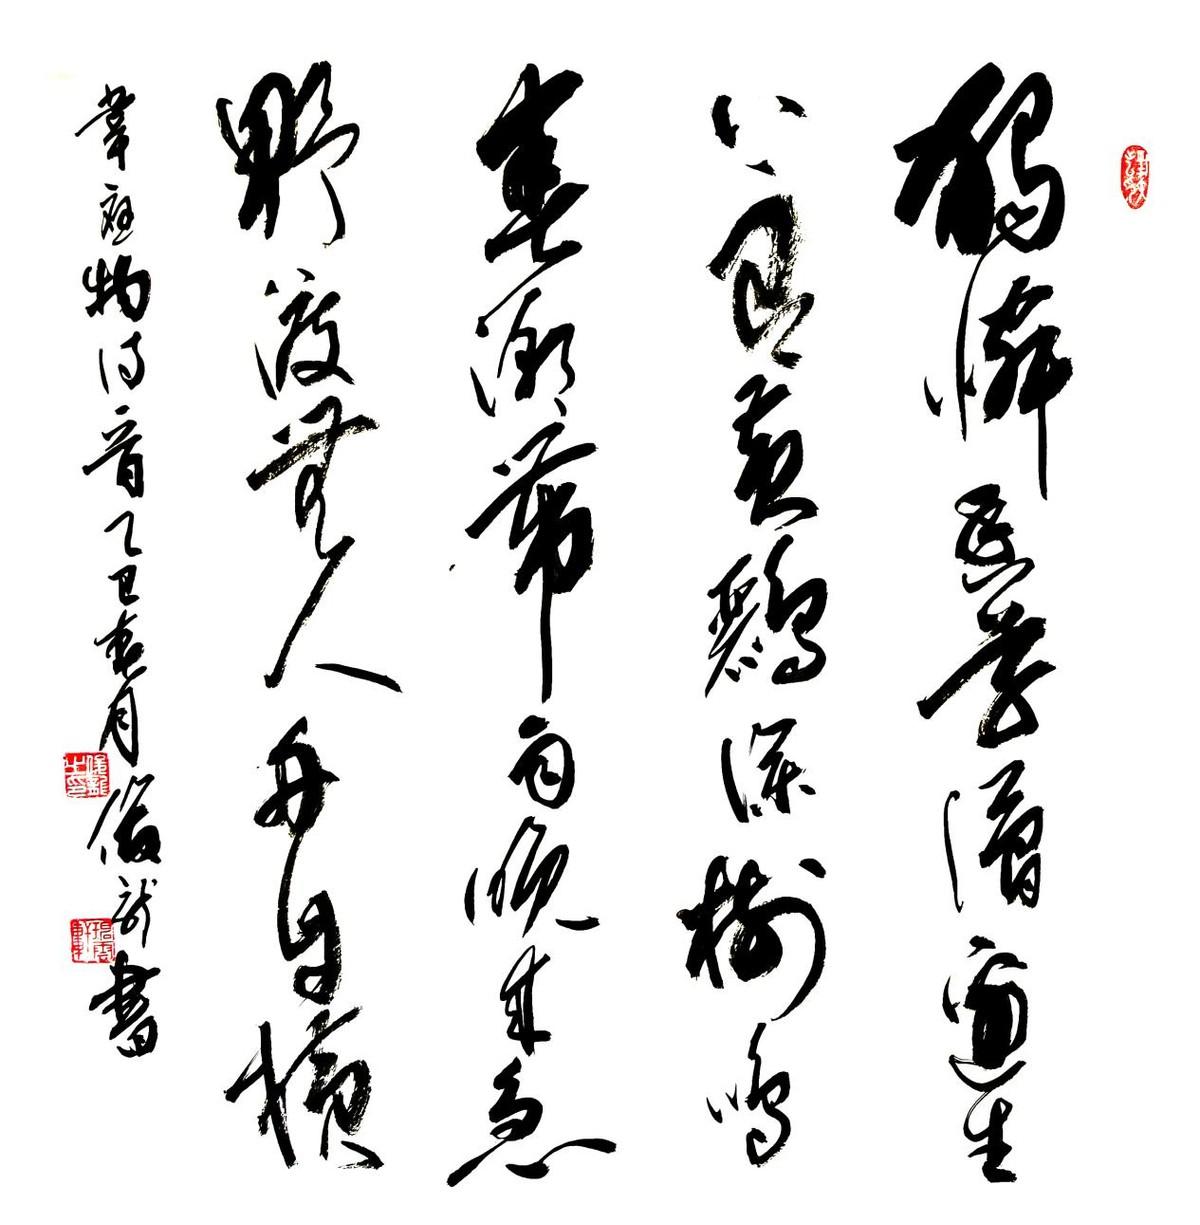 獨憐幽草澗邊生
上有黄鸝深樹鳴
春潮帶雨晚來急
野渡無人舟自橫
韋應物詩一首乙巳春月俊龍書